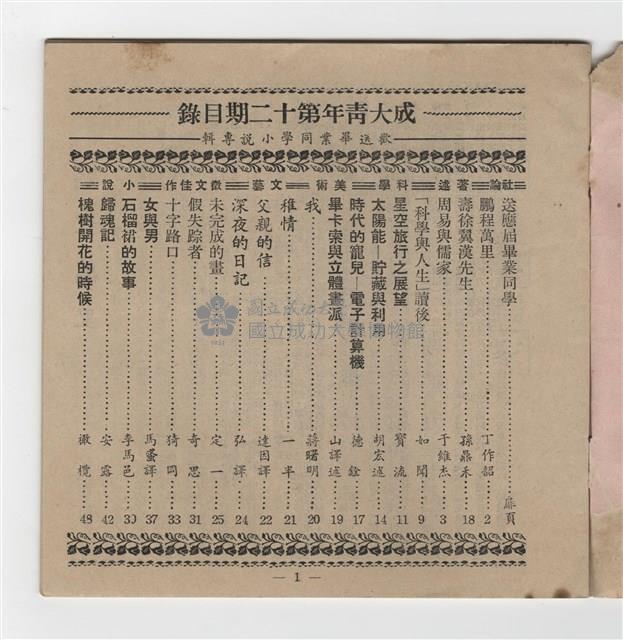 成大青年第十二期目錄
歡送畢業同學小說專輯
社論 著述 科學 美術 文藝 徵文佳作 小說
送應屆畢業同學……扉頁
鵬程萬里……丁作韶 2
壽徐翼漢先生……孫鼎禾 18
周易與儒家……于維杰 3
「科學與人生」讀後……如聞 9
星空旅行之展望……寶流 11
太陽能—貯藏與利用……胡宏述 14
時代的寵兒—電子計算機……德銓 17
畢卡索與立體畫派……山譯述 19
我……蔣曙明 20
稚情……一半 21
父親的信……達因譯 22
深夜的日記……弘譯 24
未完成的畫……定一 25
假失踪者……奇思 31
十字路口……猗岡 33
女與男……馬蛋譯 37
石榴裙的故事……李馬邑 30
歸魂記……安露 42
槐樹開花的時候……橄欖 48
國立成功大學
國立成功大學博物館
— 1 —